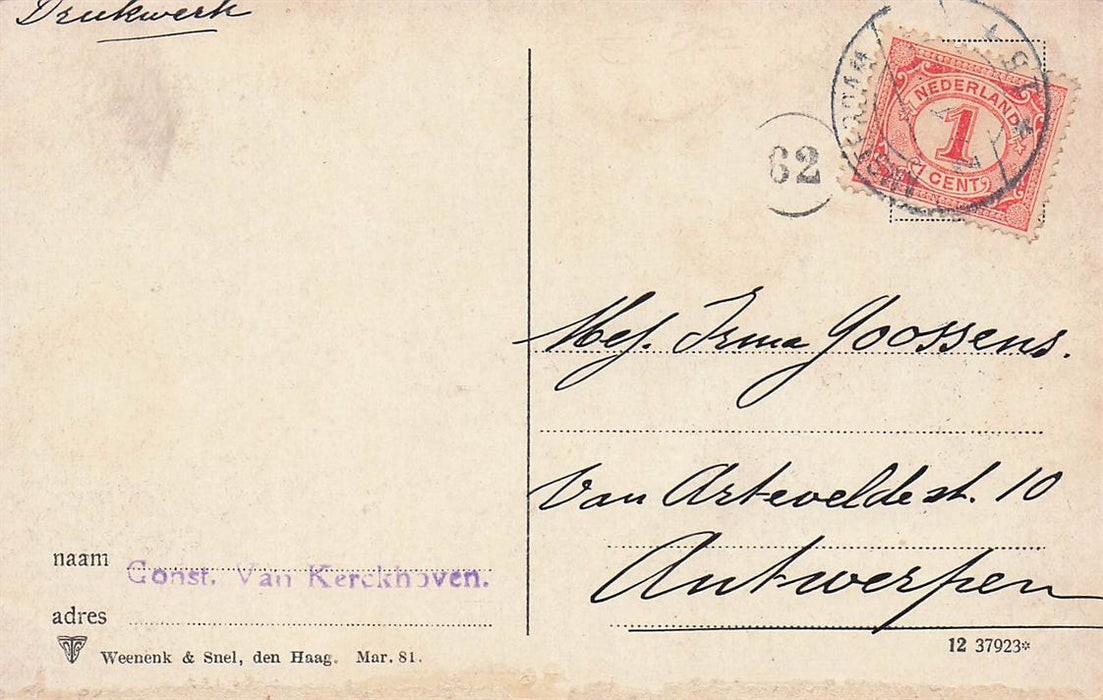 Drukwerk
NEDERLAND
1
CENT
62
Mej. Irma Goossens.
Van Arteveldest. 10
Antwerpen
naam Const. Van Kerckhoven.
adres
Weenenk & Snel, den Haag. Mar. 81.
12 37923*